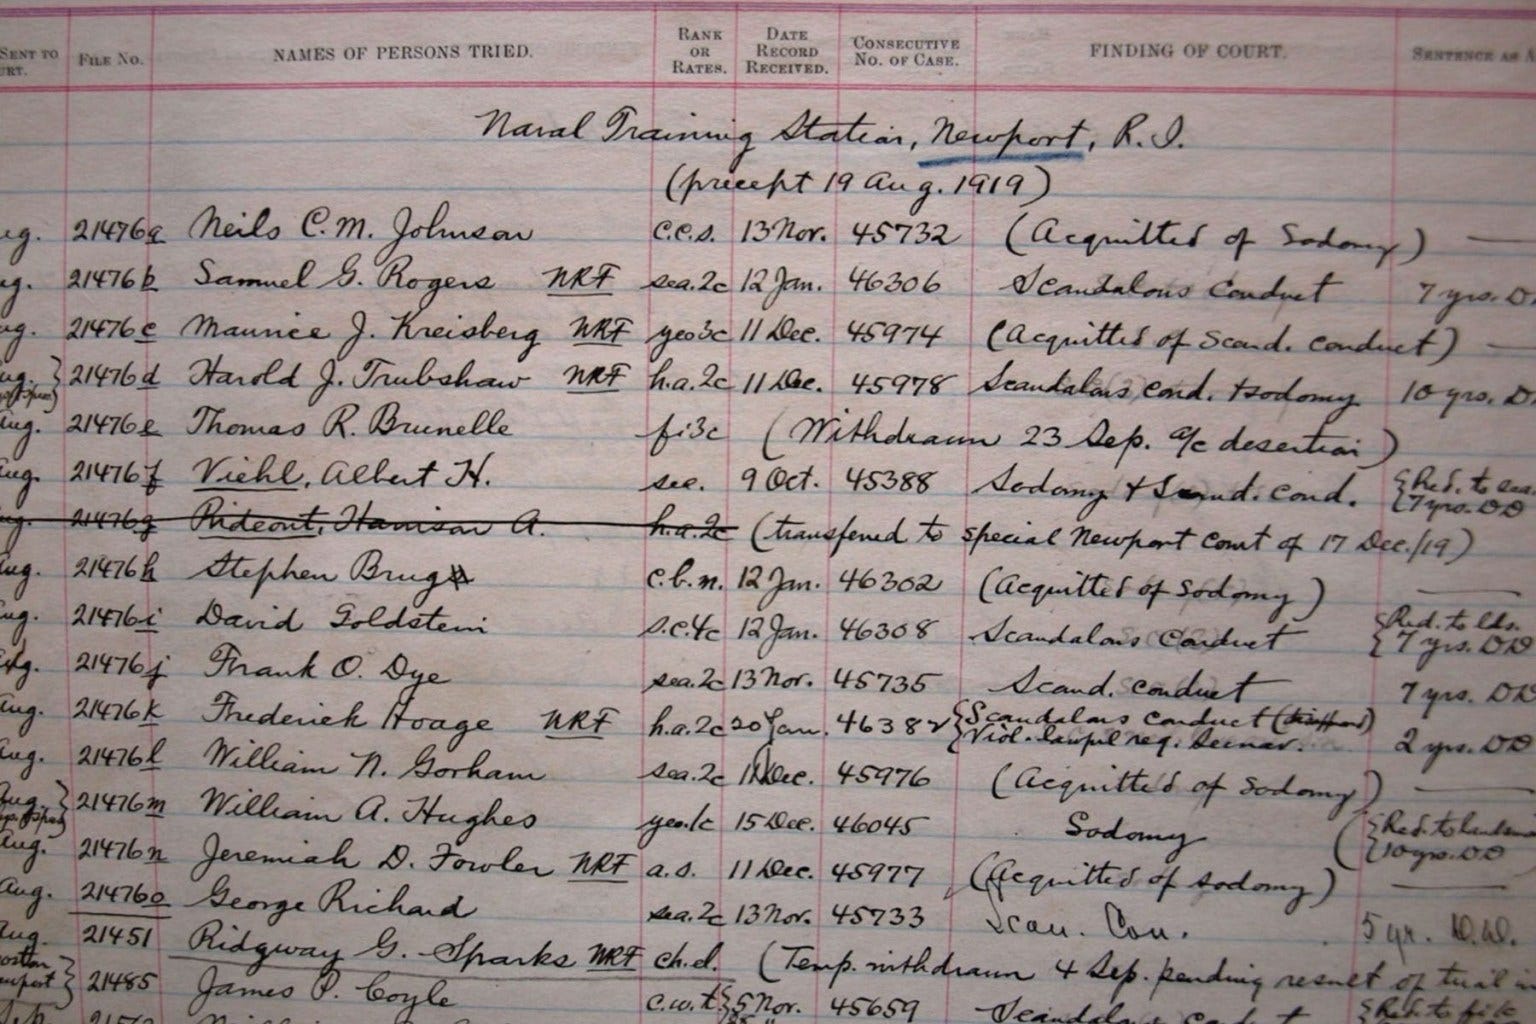 SENT TO URT. FILE NO. NAMES OF PERSONS TRIED. RANK OR RATES. DATE RECORD RECEIVED. CONSECUTIVE NO. OF CASE. FINDING OF COURT. SENTENCE AS A
Naval Training Station, Newport, R.I.
(precept 19 Aug. 1919)
ug. 21476a Neils C.M. Johnson c.c.s. 13 Nov. 45732 (Acquitted of Sodomy) —
ug. 21476b Samuel G. Rogers NRF sea.2c 12 Jan. 46306 Scandalous Conduct 7 yrs. D
ug. 21476c Maurice J. Kreisberg NRF yeo3c 11 Dec. 45974 (Acquitted of Scand. conduct) —
ug. 21476d Harold J. Trubshaw NRF h.a.2c 11 Dec. 45978 Scandalous cond. + sodomy 10 yrs. D
Aug. 21476e Thomas R. Brunelle fi3c (Withdrawn 23 Sep. a/c desertion)
Aug. 21476f Viehl, Albert H. sec. 9 Oct. 45388 Sodomy + Scand. cond. {Red. to sea. {7 yrs. DD
ug. 21476g Rideout, Harrison A. h.a.2c (transferred to special Newport Court of 17 Dec./19)
Aug. 21476h Stephen Brugs c.b.m. 12 Jan. 46302 (Acquitted of Sodomy) —
Aug. 21476i David Goldstein s.c.4c 12 Jan. 46308 Scandalous Conduct {Red. to lds. {7 yrs. DD
Aug. 21476j Frank O. Dye sea.2c 13 Nov. 45735 Scand. conduct 7 yrs. DD
Aug. 21476k Frederick Hoage NRF h.a.2c 20 Jan. 46382 {Scandalous conduct {Viol. lawful reg. Secnav. 2 yrs. DD
Aug. 21476l William N. Gorham sea.2c 11 Dec. 45976 (Acquitted of Sodomy) —
Aug. 21476m William A. Hughes yeo.1c 15 Dec. 46045 Sodomy {Red. to landsma {10 yrs. DD
Aug. 21476n Jeremiah D. Fowler NRF a.s. 11 Dec. 45977 (Acquitted of sodomy) —
Aug. 21476o George Richard sea.2c 13 Nov. 45733 Scan. Con. 5 yr. D.D.
Aug. 21451 Ridgway G. Sparks NRF ch.el. (Temp. withdrawn 4 Sep. pending result of trial in
21485 James P. Coyle c.w.t. 5 Nov. 45659 Scandalous conduct {Red. to fi
Sep.